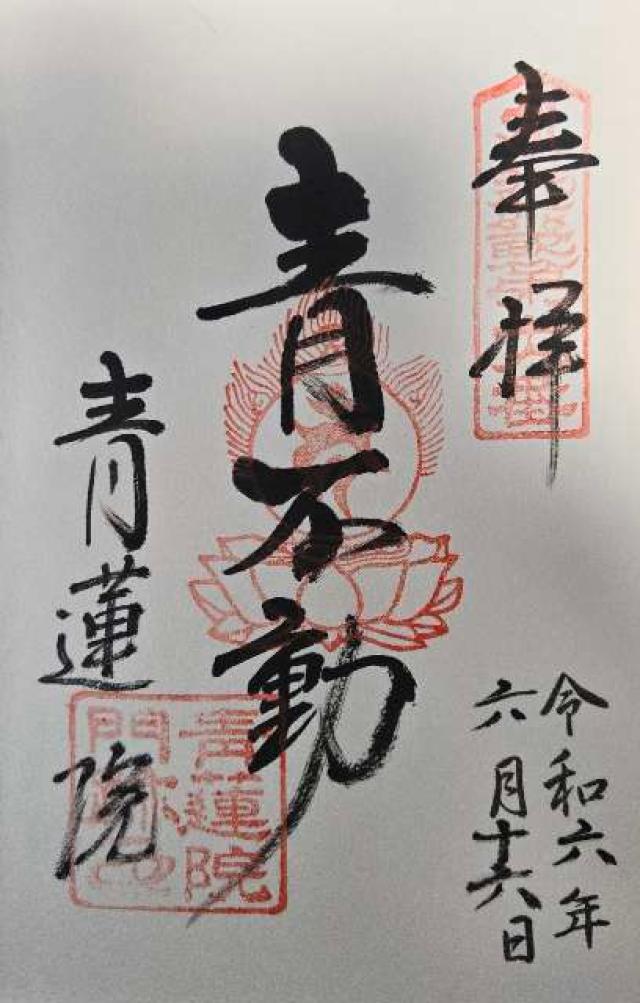 奉拝
青不動
青蓮院
令和六年
六月十六日
青蓮院
門跡印